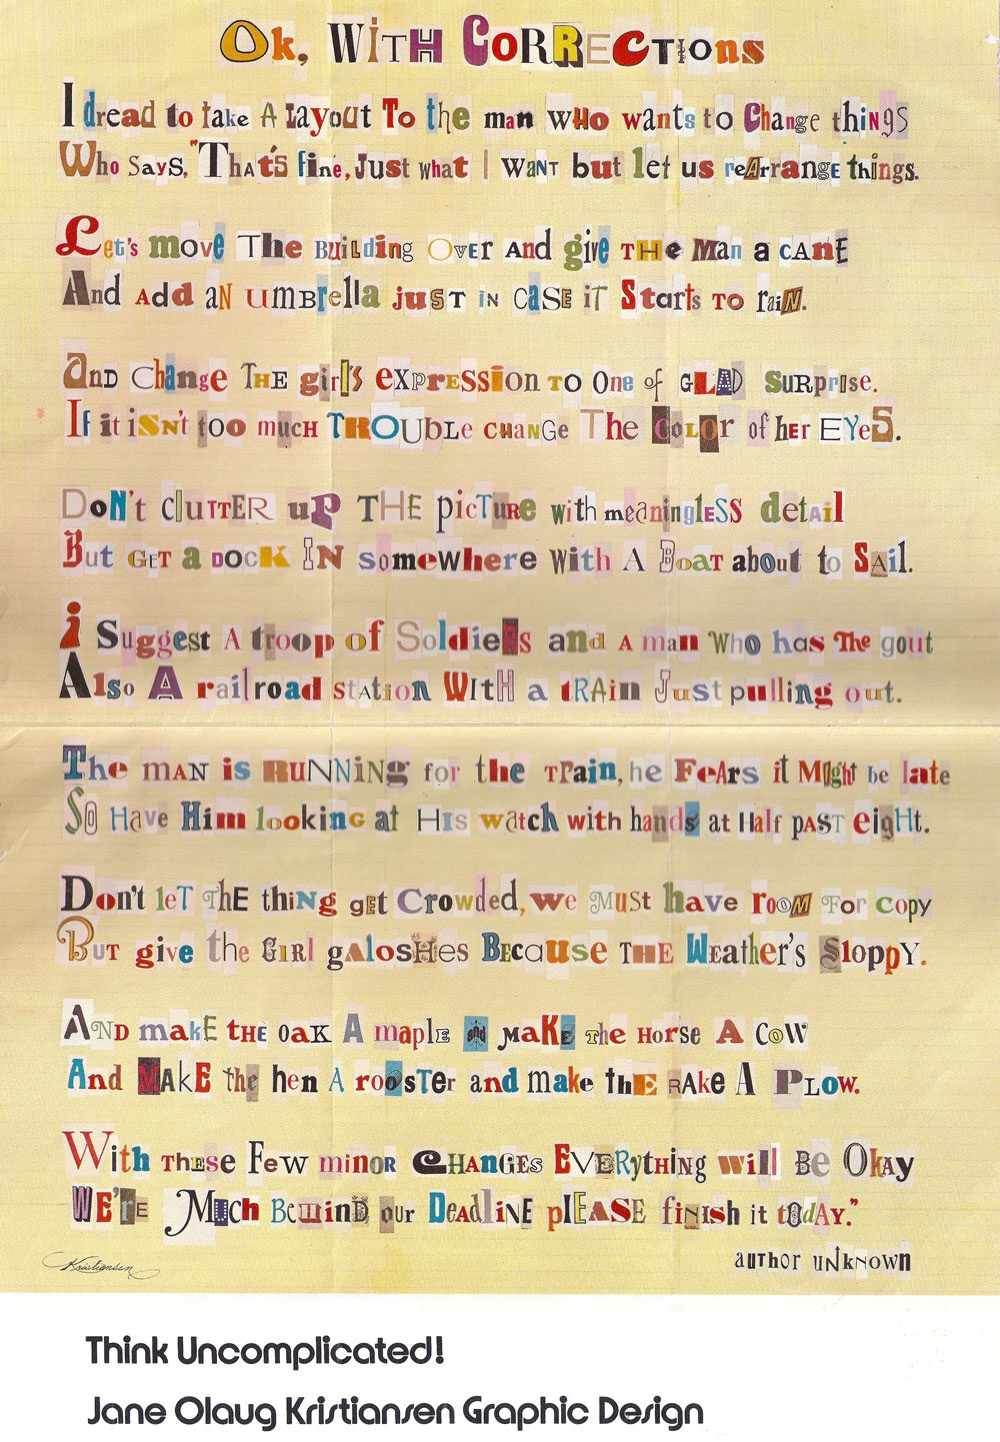 Ok, WiTH CORRECTions
I dread to take A Layout To the man wHo wants to Change thiNgS
Who SayS, "ThAt's fine, Just what I WANT but let us reArranGE things.
Let's move The BuiLding OvER AND give THe Man a CANE
And Add aN umBRella juST iN CaSE iT Starts TO raiN.
anD Change THE girl's eXpRESSion TO One of GLAD SuRPRise.
If it iSN't too mucH TROUblE cHANGe The COLOR of her EYeS.
DoN't clUTTER uP THE picTURe with meaninglESS detAil
But GeT a DOcK IN somewhere With A BoAT about to SAil.
i Suggest A troop of SoldieRs and A man Who has The gout
Also A railroad stATion WItH a tRAin Just pulling out.
The mAN is RuNNiNg for the TRain, he FeArs it Might be late
SO Have Him looking at HIs watch with hands at Half pAST eigHt.
Don't leT THE thiNg gEt Crowded, we MuSt have rooM For copy
BuT give the GiRl gAlosHes BEcause THE Weather's SloppY.
AND makE tHE OaK A maplE and MaKE the HorSe A CoW
And MAkE the hen A roosTer and make thE RAke A PLow.
With THese Few minOR CHAnGEs EVERythiNg will Be OkAy
WE're MUch BeHinD our DeadliNE plEASE fiNish it todAY."
author uNkNown
Kristiansen
Think Uncomplicated!
Jane Olaug Kristiansen Graphic Design